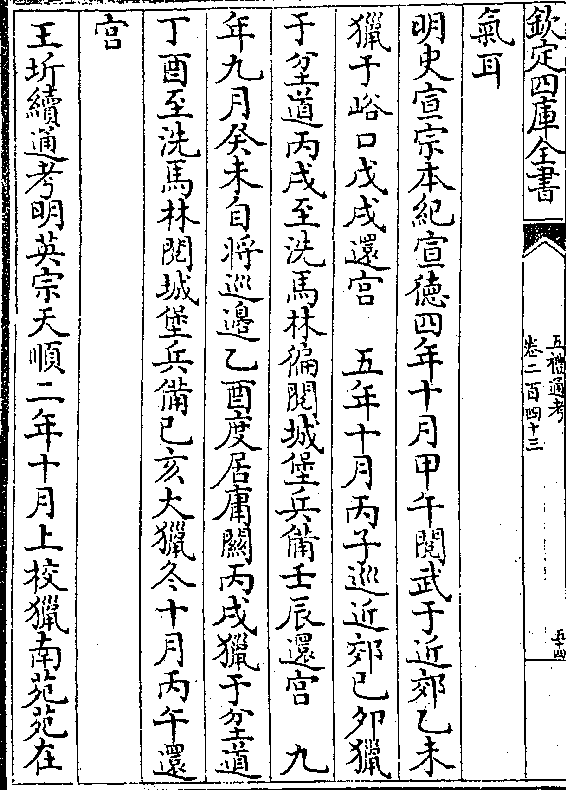 欽定四庫全書
五禮通考
卷二百四十三
五十四
氣耳
明史宣宗本紀宣德四年十月甲午閱武于近郊乙未
獵于峪口戊戌還宮　五年十月丙子巡近郊己卯獵
于坌道丙戌至洗馬林徧閱城堡兵備壬辰還宮　九
年九月癸未自將巡邊乙酉度居庸關丙戌獵于坌道
丁酉至洗馬林閱城堡兵備己亥大獵冬十月丙午還
宮
王圻續通考明英宗天順二年十月上校獵南苑苑在